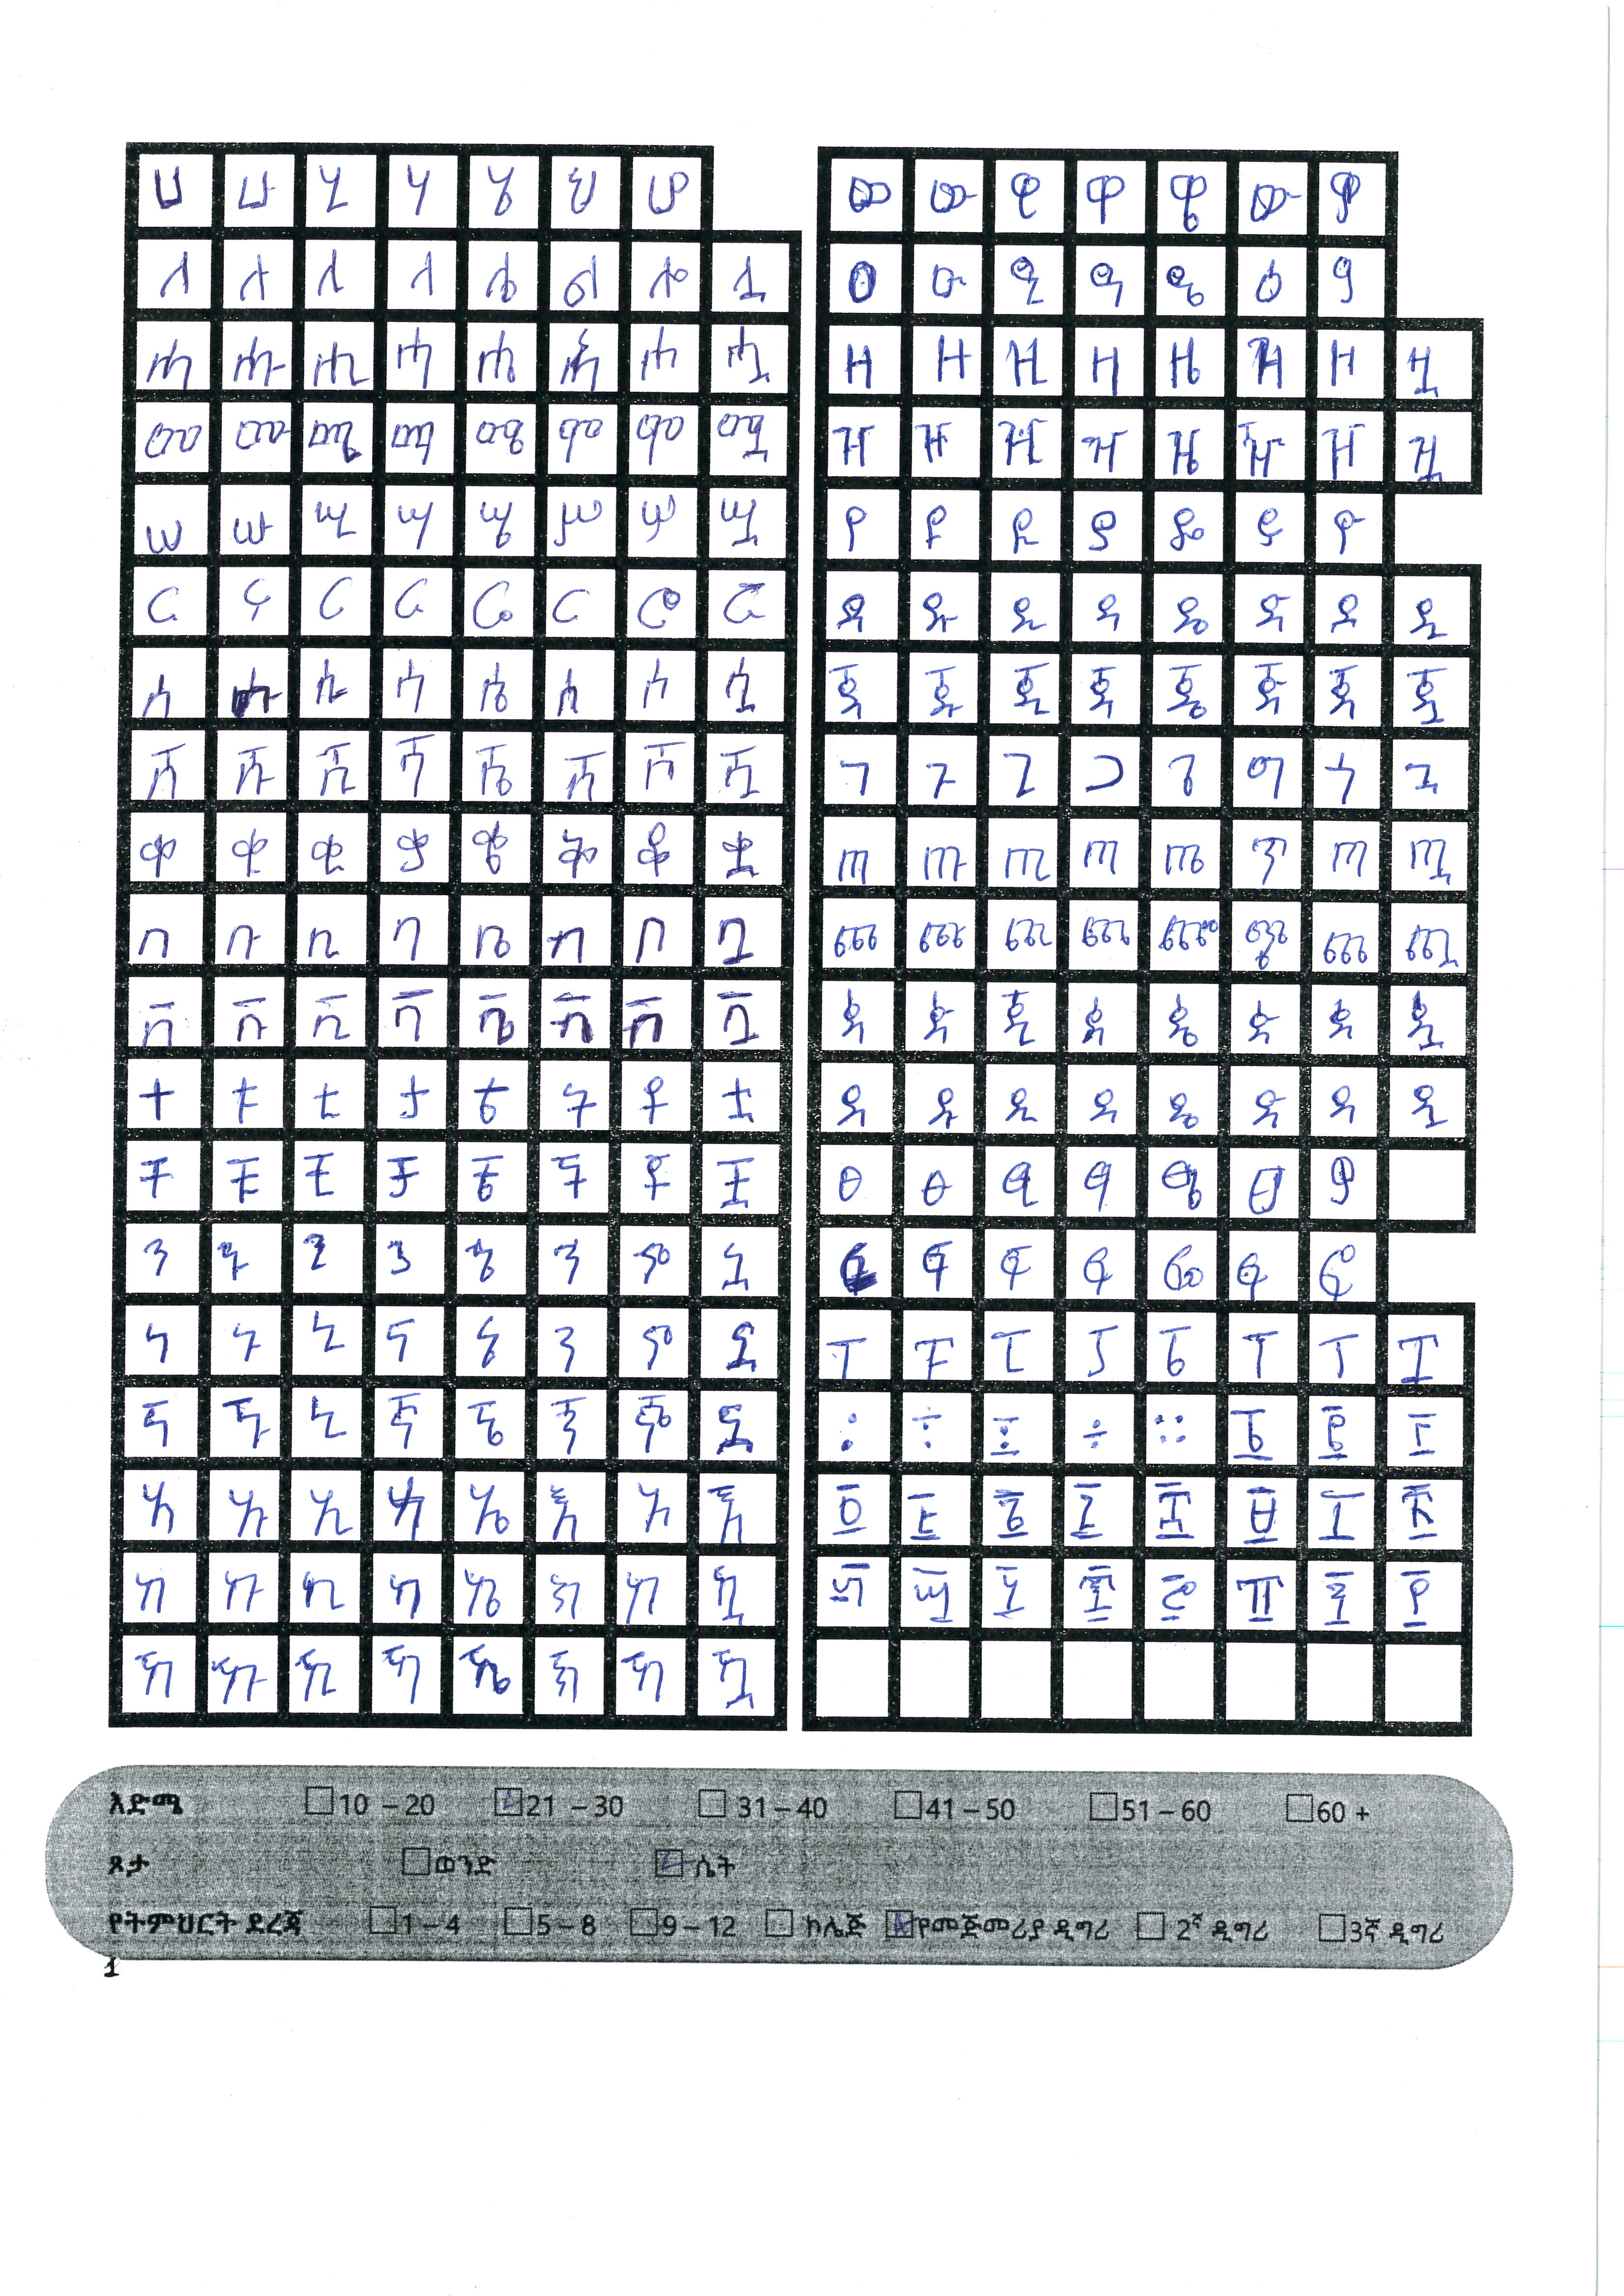 ሀ ሁ ሂ ሃ ሄ ህ ሆ
ለ ሉ ሊ ላ ሌ ል ሎ ሏ
ሐ ሑ ሒ ሓ ሔ ሕ ሖ ሗ
መ ሙ ሚ ማ ሜ ም ሞ ሟ
ሠ ሡ ሢ ሣ ሤ ሥ ሦ ሧ
ረ ሩ ሪ ራ ሬ ር ሮ ሯ
ሰ ሱ ሲ ሳ ሴ ስ ሶ ሷ
ሸ ሹ ሺ ሻ ሼ ሽ ሾ ሿ
ቀ ቁ ቂ ቃ ቄ ቅ ቆ ቋ
በ ቡ ቢ ባ ቤ ብ ቦ ቧ
ቨ ቩ ቪ ቫ ቬ ቭ ቮ ቯ
ተ ቱ ቲ ታ ቴ ት ቶ ቷ
ቸ ቹ ቺ ቻ ቼ ች ቾ ቿ
ኀ ኁ ኂ ኃ ኄ ኅ ኆ ኋ
ነ ኑ ኒ ና ኔ ን ኖ ኗ
ኘ ኙ ኒ ኛ ኜ ኝ ኞ ኟ
አ ኡ ኢ ኣ ኤ እ ኦ ኧ
ከ ኩ ኪ ካ ኬ ክ ኮ ኳ
ኸ ኹ ኺ ኻ ኼ ኽ ኾ ዃ
ወ ዉ ዊ ዋ ዌ ው ዎ
ዐ ዑ ዒ ዓ ዔ ዕ ዖ
ዘ ዙ ዚ ዛ ዜ ዝ ዞ ዟ
ዠ ዡ ዢ ዣ ዤ ዥ ዦ ዧ
የ ዩ ዪ ያ ዬ ይ ዮ
ደ ዱ ዲ ዳ ዴ ድ ዶ ዷ
ጀ ጁ ጂ ጃ ጄ ጅ ጆ ጇ
ገ ጉ ጊ ጋ ጌ ግ ጎ ጓ
ጠ ጡ ጢ ጣ ጤ ጥ ጦ ጧ
ጨ ጩ ጪ ጫ ጬ ጭ ጮ ጯ
ጰ ጱ ጲ ጳ ጴ ጵ ጶ ጷ
ጸ ጹ ጺ ጻ ጼ ጽ ጾ ጿ
ፀ ፁ ፂ ፃ ፄ ፅ ፆ
ፈ ፉ ፊ ፋ ፌ ፍ ፎ
ፐ ፑ ፒ ፓ ፔ ፕ ፖ ፗ
፡ ፥ ፤ ፣ ። ፩ ፪ ፫
፬ ፭ ፮ ፯ ፰ ፱ ፲ ፳
፴ ፵ ፶ ፷ ፸ ፹ ፺ ፻
እድሜ 10 – 20 21 – 30 31 – 40 41 – 50 51 – 60 60 +
ጾታ ወንድ ሴት
የትምህርት ደረጃ 1 – 4 5 – 8 9 – 12 ኮሌጅ የመጀመሪያ ዲግሪ 2ኛ ዲግሪ 3ኛ ዲግሪ
1